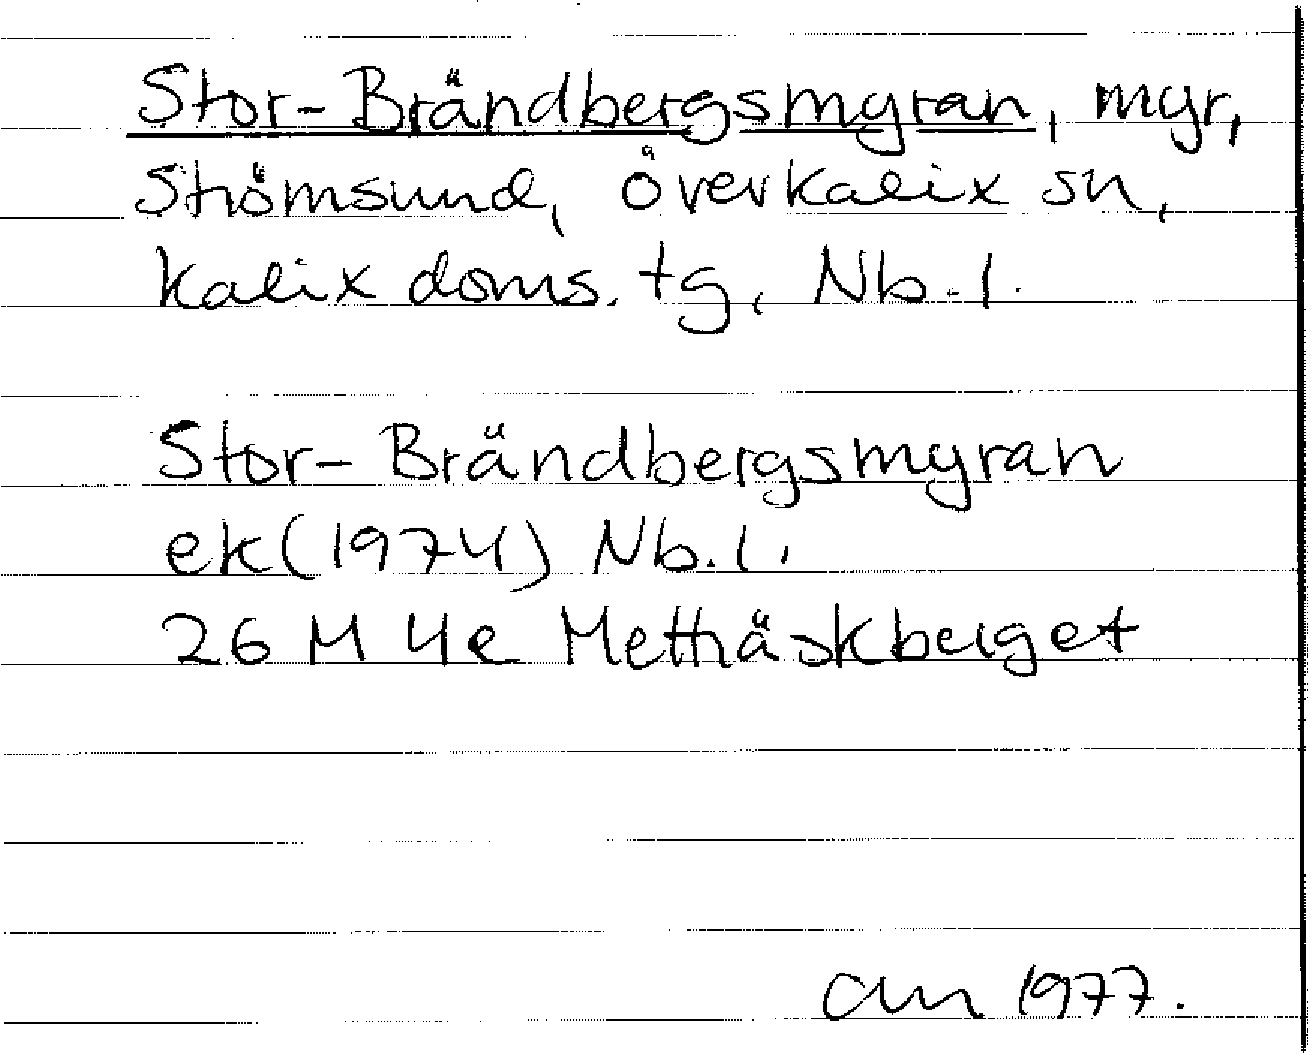 Stor-Brändbergsmyran, myr,
Strömsund, Överkalix sn,
Kalix doms. tg, Nb. l.
Stor-Brändbergsmyran
ek (1974) Nb. l.
26 M 4e Metträskberget
am 1977.